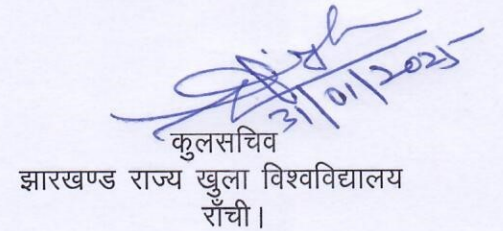 31/01/2025
कुलसचिव
झारखण्ड राज्य खुला विश्वविद्यालय
राँची।